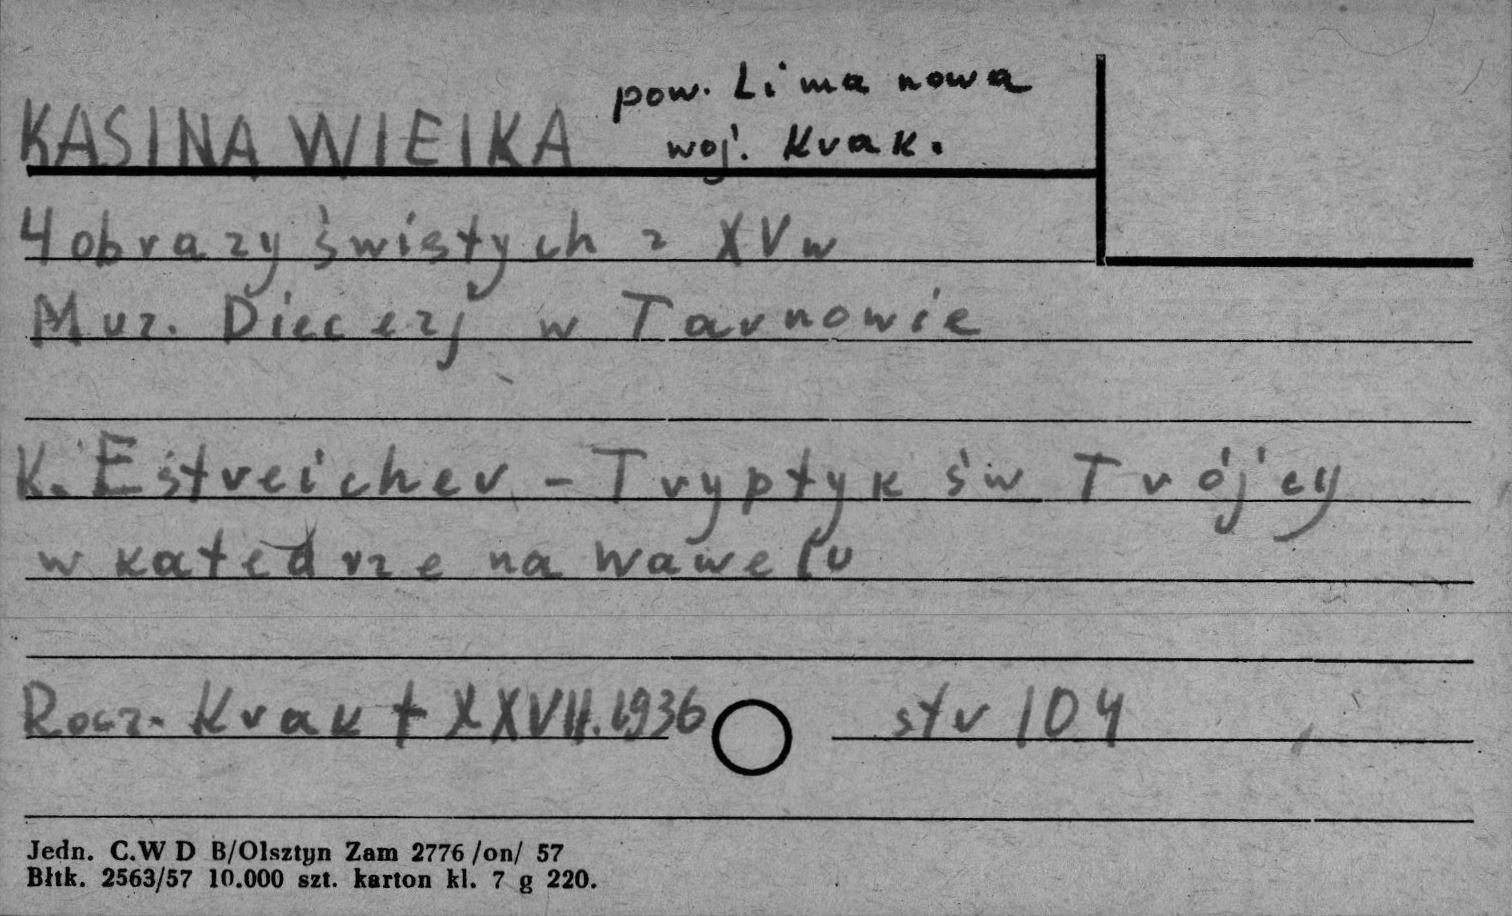 KASINA WIELKA pow. Limanowa
woj. Krak.
4 obrazy świętych z XV w
Muz. Diecezj w Tarnowie
K. Estreicher - Tryptyk św Trójcy
w katedrze na Wawelu
Rocz. Krak t XXVII. 1936 str 104
Jedn. C.W D B/Olsztyn Zam 2776 /on/ 57
Błtk. 2563/57 10.000 szt. karton kl. 7 g 220.